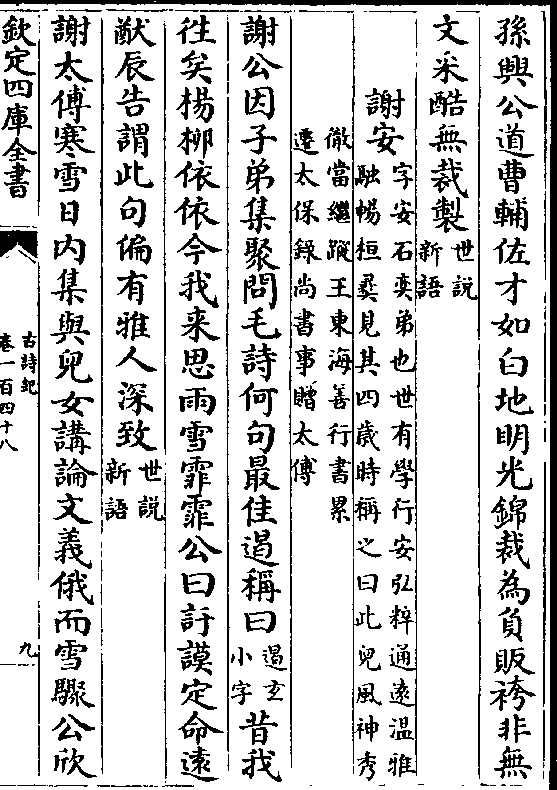 孫興公道曹輔佐才如白地眀光錦裁為負販袴非無
文采酷無裁製世説
新語
謝安字安石奕弟也世有學行安弘粹通遠温雅
融暢桓彛見其四歳時稱之曰此兒風神秀
徹當繼蹤王東海善行書累
遷太保錄尚書事贈太傅
謝公因子弟集聚問毛詩何句最佳遏稱曰遏玄
小字昔我
徃矣楊栁依依今我来思雨雪霏霏公曰訏謨定命遠
猷辰告謂此句偏有雅人深致世説
新語
謝太傅寒雪日内集與兒女講論文義俄而雪驟公欣
欽定四庫全書
古詩紀
卷一百四十八
九